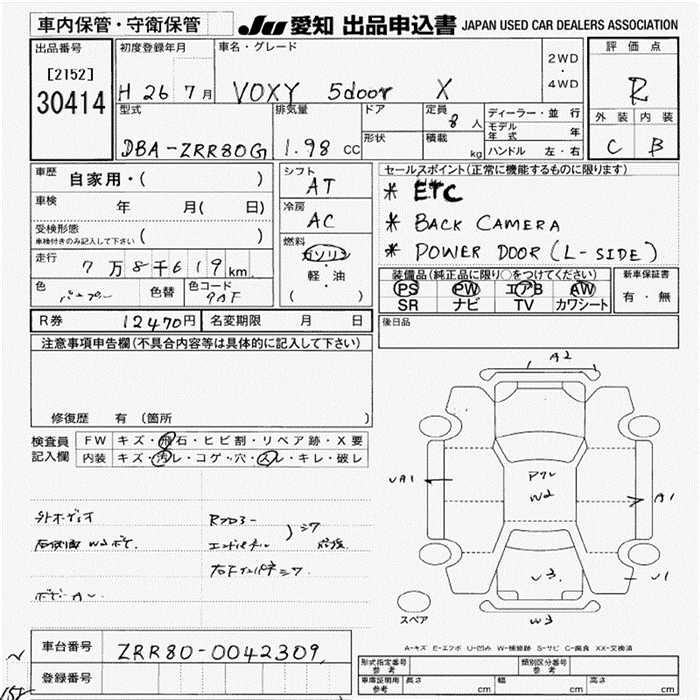 車内保管・守衛保管
JU 愛知 出品申込書 JAPAN USED CAR DEALERS ASSOCIATION
出品番号
[2152]
30414
初度登録年月
H 26 7月
車名・グレード
VOXY 5door X
2WD
・
4WD
評価点
R
外装 内装
C B
型式
DBA-ZRR80G
排気量
1.98 cc
ドア
形状
定員
8人
積載
kg
ディーラー・並行
モデル年式 年
ハンドル 左・右
車歴 自家用・( )
車検 年 月( 日)
受検形態
車検付きのみ記入して下さい ( )
走行 7万8千619km
色
色替
色コード
シフト
AT
冷房
AC
燃料
ガソリン
・
軽・油
( )
セールスポイント(正常に機能するものに限ります)
* ETC
* BACK CAMERA
* POWER DOOR (L-SIDE)
装備品(純正品に限り○をつけてください)
PS PW エアB AW
SR ナビ TV カワシート
新車保証書
有・無
R券 12470円 名変期限 月 日
後日品
注意事項申告欄(不具合内容等は具体的に記入して下さい)
修復歴 有 (箇所 )
検査員
記入欄
FW キズ・飛石・ヒビ割・リペア跡・X要
内装 キズ・汚レ・コゲ・穴・スレ・キレ・破レ
A2
UA1
A1
W2
U3
U1
W3
スペア
A-キズ E-エクボ U-凹み W-補修跡 S-サビ C-腐食 XX-交換済
車台番号 ZRR80-0042309
登録番号
形式指定番号
参考
類別区分番号
参考
車庫証明用
参考
長さ cm 幅 cm 高さ cm